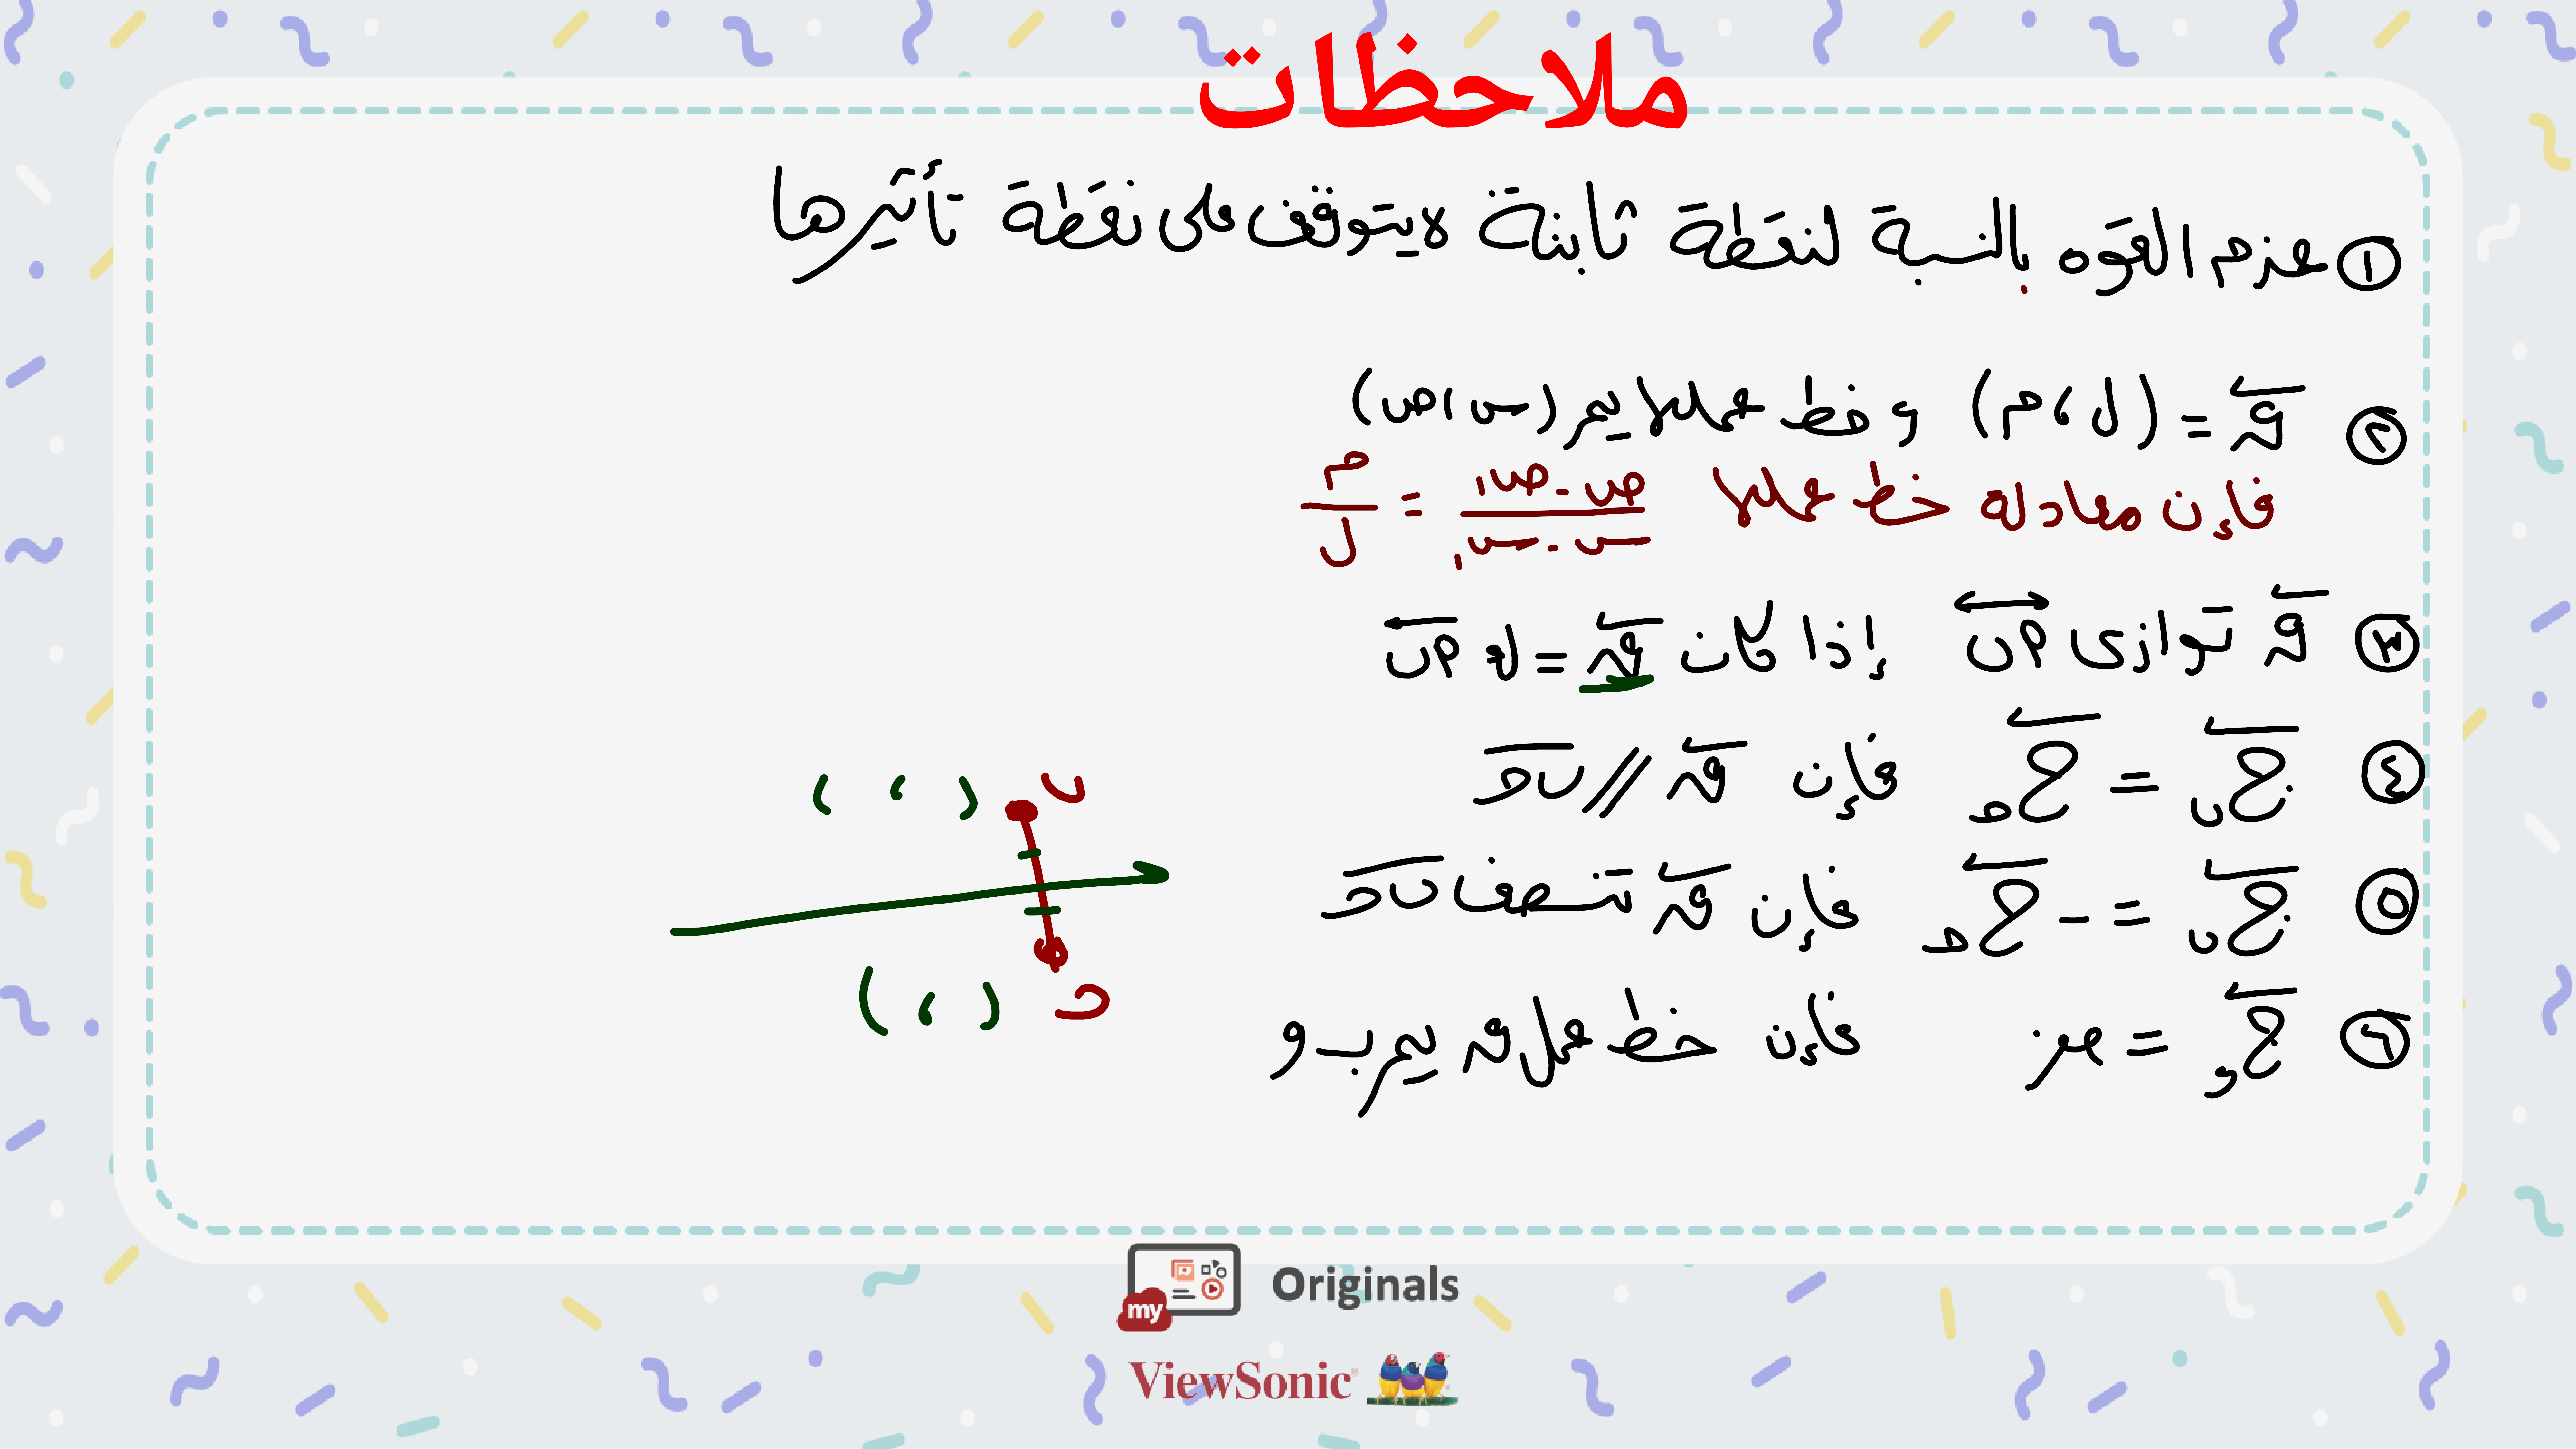 ملاحظات
① عزم القوه بالنسبة لنقطة ثابتة لا يتوقف على نقطة تأثيرها
② ق = (ل ، م) و خط عملها يمر (س ، ص)
فإن معادلة خط عملها ص - ص١ / س - س١ = م / ل
③ ق توازى ↔أب إذا كان ق = ك أب
④ ج ب = ج د فإن ق // ب د
⑤ ج ب = - ج د فإن ق تنصف ب د
⑥ ج و = صفر فإن خط عمل ق يمر بـ و
( ، ) ب
( ، ) د
my Originals
ViewSonic